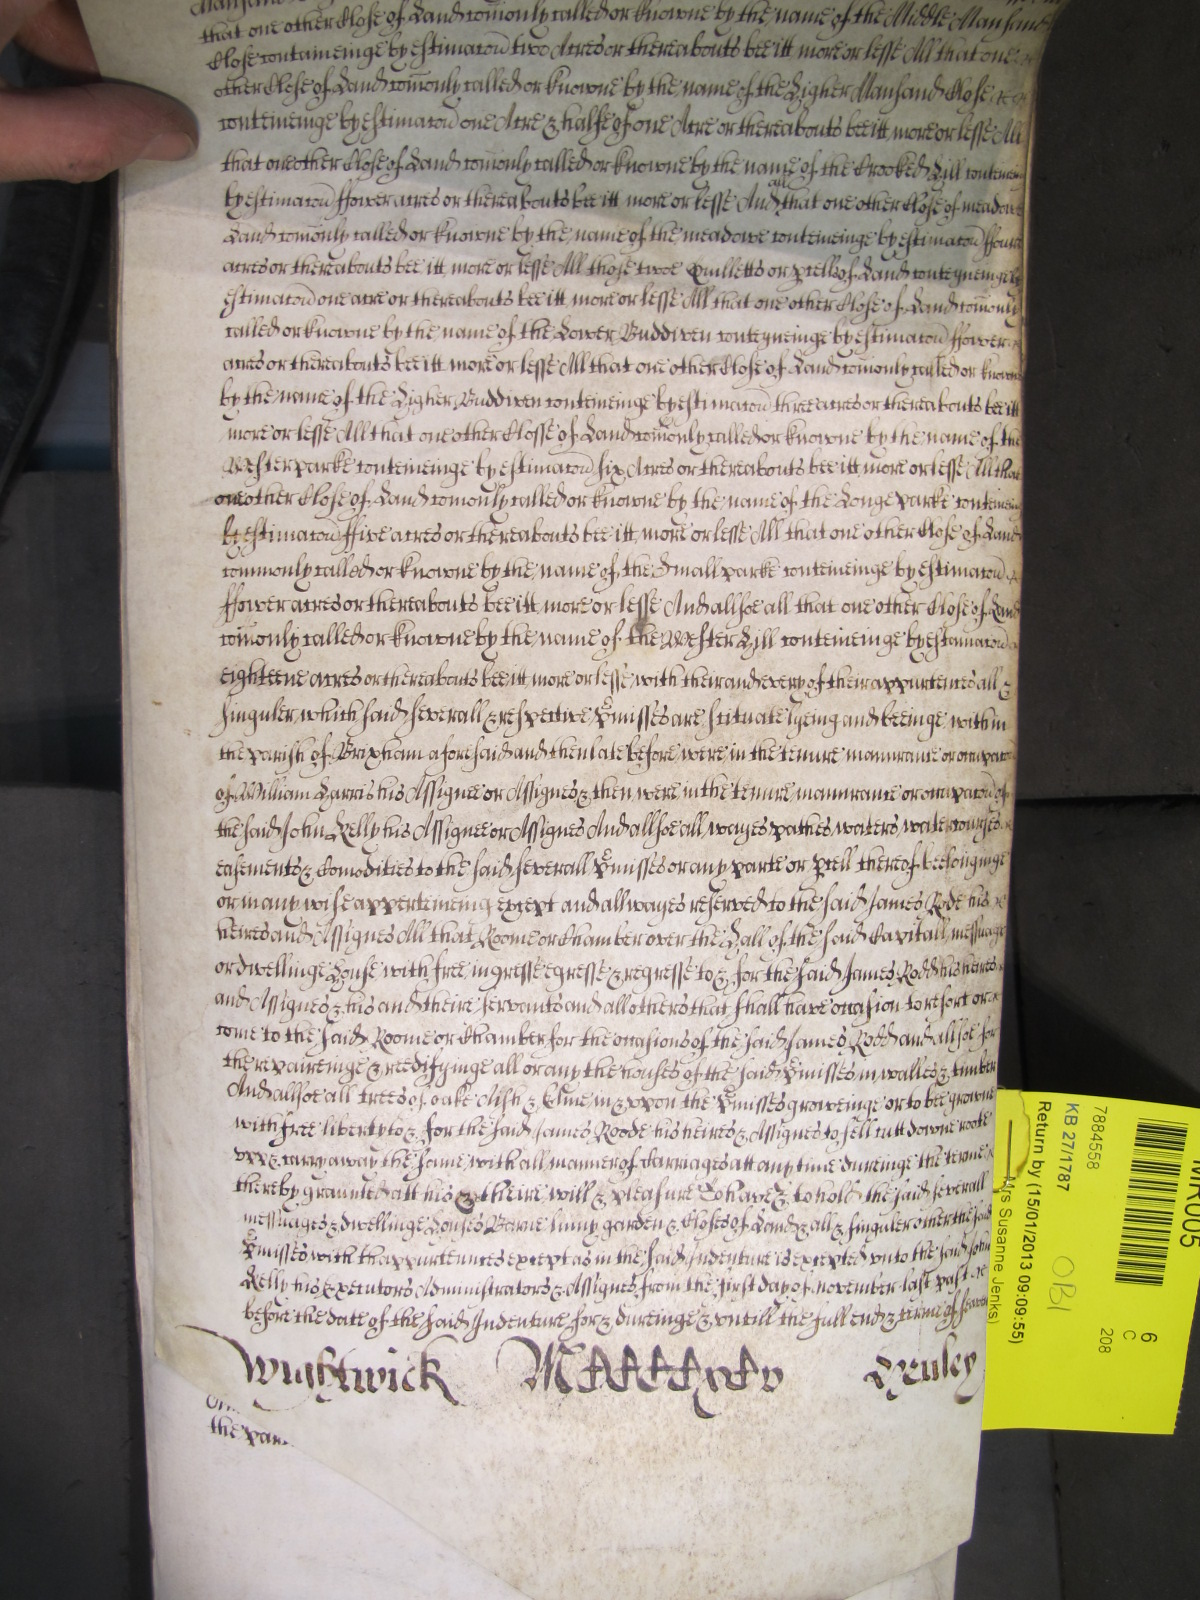 that one other Close of Land com̄only called or knowne by the name of the Middle Mansand
Close conteineinge by estimac̄on two Acres or thereabouts bee itt more or lesse All that one
other Close of Land com̄only called or knowne by the name of the Higher Mansand Close
conteineinge by estimac̄on one Acre & halfe of one Acre or thereabouts bee itt more or lesse All
that one other Close of Land com̄only called or knowne by the name of the Crooked Hill
by estimac̄on ffower acres or thereabouts bee itt more or lesse And all that one other Close of meadowe
Land com̄only called or knowne by the name of the meadowe conteineinge by estimac̄on
acres or thereabouts bee itt more or lesse All those twoe Quilletts or p̱cells of Land conteyneinge by
estimac̄on one acre or thereabouts bee itt more or lesse All that one other Close of Land com̄only
called or knowne by the name of the Lower Buddwen conteyneinge by estimac̄on ffower
acres or thereabouts bee itt more or lesse All that one other Close of Land com̄only called or knowne
by the name of the Higher Buddwen conteineinge by estimac̄on three acres or thereabouts bee itt
more or lesse All that one other Closse of Land com̄only called or knowne by the name of the
Wester parke conteineinge by estimac̄on six Acres or thereabouts bee itt more or lesse All that
one other Close of Land com̄only called or knowne by the name of the Longe parke
by estimac̄on ffive acres or thereabouts bee itt more or lesse All that one other Close of Land
commonly called or knowne by the name of the Small parke conteineinge by estimac̄on
ffower acres or thereabouts bee itt more or lesse And allsoe all that one other Close of Land
com̄only called or knowne by the name of the Wester Hill conteineinge by estimac̄on
eighteene acres or thereabouts bee itt more or lesse with their and every of their appurten̄ces all &
singuler which said severall & respective P̱misses are scituate lyeing and beeinge within
the parish of Brixham aforesaid and then late before were in the tenure mannrance or occupac̄on
of William Harris his Assignee or Assignes & then were in the tenure mannrance or occupac̄on of
the said John Kelly his Assignee or Assignes And allsoe all wayes pathes waters watercourses
easements & Comodities to the said severall P̱misses or any parte or p̱cell thereof beelonginge
or in any wise apperteineing except and allwayes reserved to the said James Rode his
heires and Assignes All that Roome or Chamber over the Hall of the said Capitall messuage
or dwellinge House with free ingresse egresse & regresse to & for the said James Rodd his heires
and Assignes & his and theire servants and all others that shall have occasion to resort or
come to the said Roome or Chamber for the occasions of the said James Rodd and allsoe for
the repaireinge & reedifyinge all or any the houses of the said P̱misses in walles & timber
And allsoe all trees of oake Aish & Elme in & vpon the P̱misses groweinge or to bee growne
with free liberty to & for the said James Roode his heires & Assignes to fell cutt downe roote
vpp & carry away the same with all manner of Carriages att any time dureinge the terme
thereby graunted att his & theire will & pleasure To have & to hold the said severall
messuages & dwellinge Houses Barne linny garden & Closes of Land & all & singuler other the said
P̱misses with thappurten̄nces except as in the said Indenture is excepted vnto the said John
Kelly his executors Administrators & Assignes from the first day of november last past
before the date of the said Indenture for & dureinge & vntill the full end & terme of
Wightwick Henley
the
7884558
KB 27/1787
Return by (15/01/2013 09:09:55)
Mrs Susanne Jenks)
OBI
6
C
208